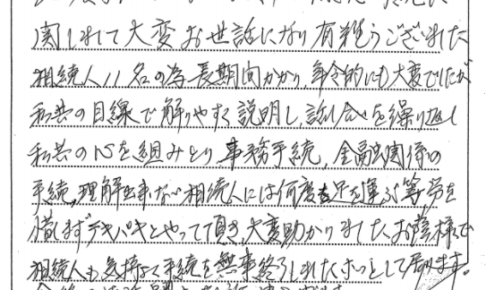 関しまして大変お世話になり有難うございました
相続人11名の為長期間かかり、年令的にも大変でしたが
私共の目線で解りやすく説明し、話し合いを繰り返し
私共の心を組みとり事務手続、金融関係の
手続、理解出来ない相続人には何度も足を運ぶ等労を
惜しまずテキパキとやって頂き大変助かりました。お陰様で
相続人も気持よく手続を無事終了しましたホッとして居ります。